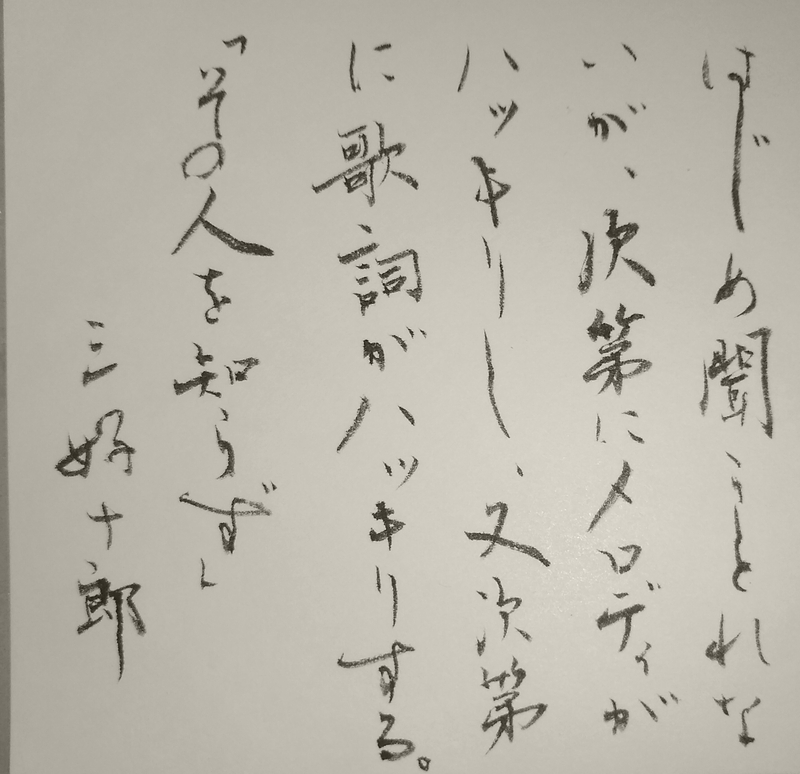 はじめ聞きとれな
いが、次第にメロディが
ハッキリし、又次第
に歌詞がハッキリする。
「その人を知らず」
三好十郎